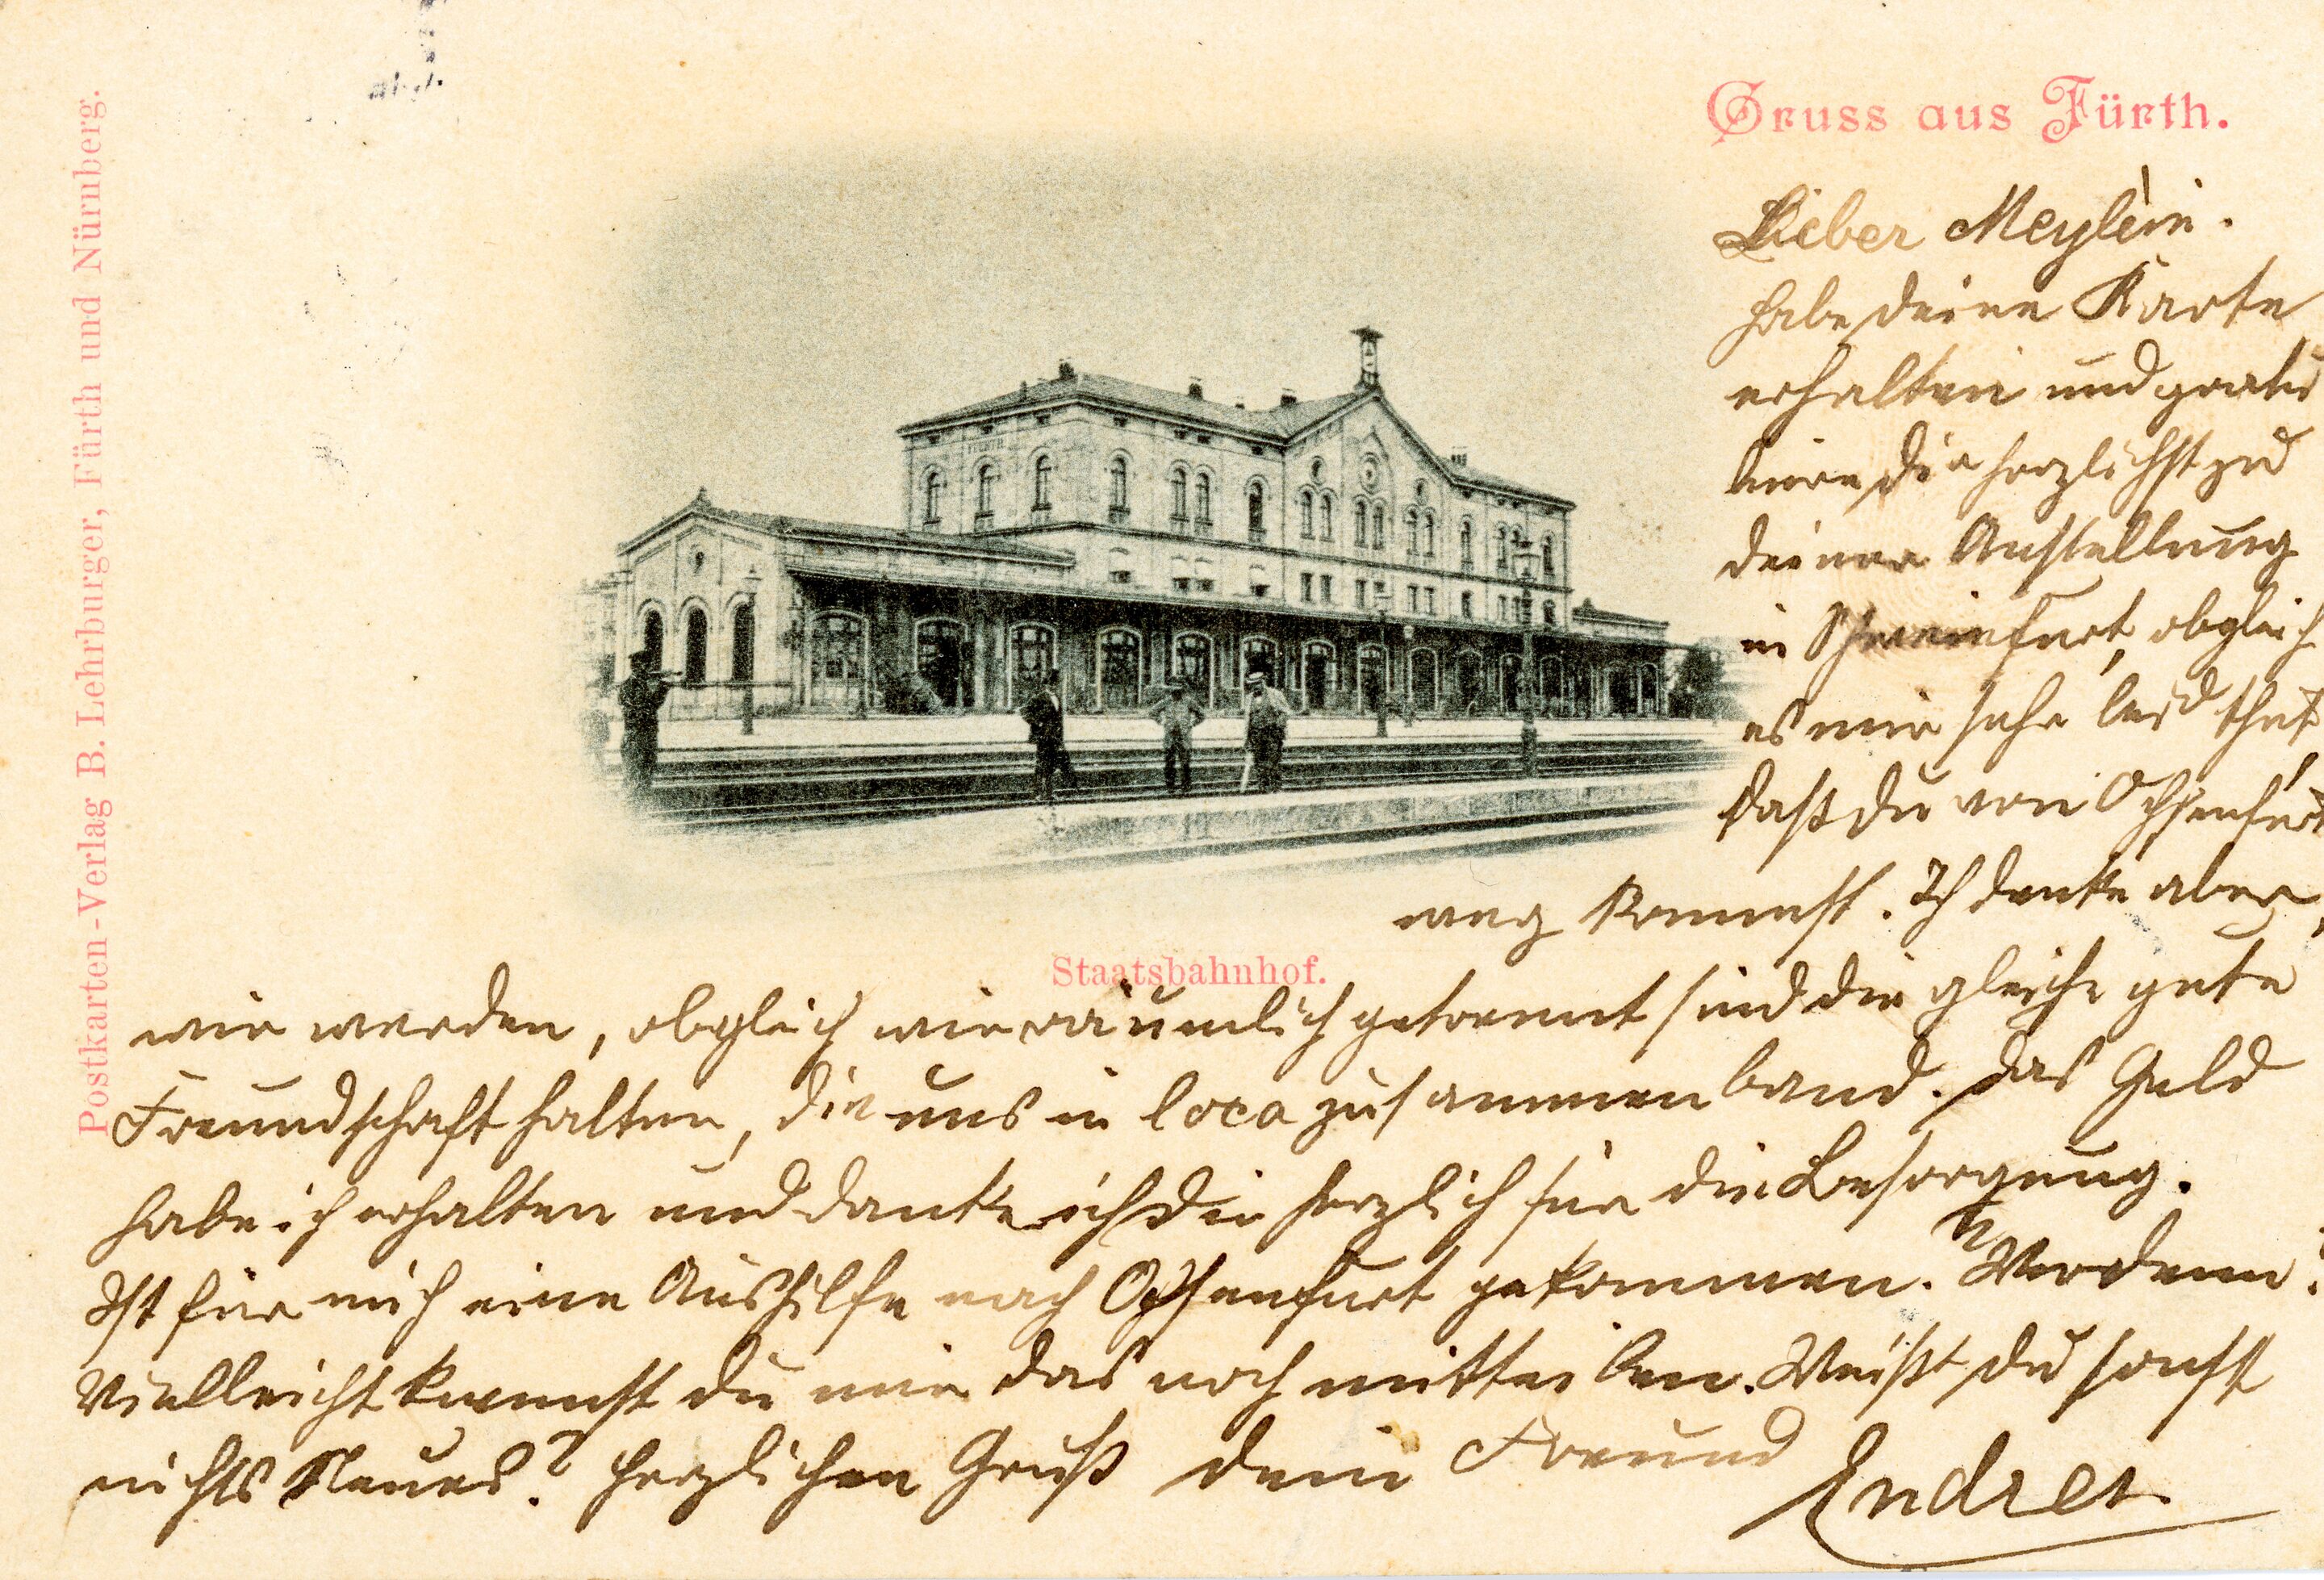 Gruss aus Fürth.
Postkarten-Verlag B. Lehrburger, Fürth und Nürnberg.
Staatsbahnhof.
Lieber Meylein.
Habe deine Karte
erhalten und gratu
liere dir herzlichst zu
deiner Anstellung
in Schweinfurt, obgleich
es mir sehr leid thut,
daß du von Ochsenfurt
weg kommst. Ich denke aber,
wir werden, obgleich wir räumlich getrennt sind die gleiche gute
Freundschaft halten, die uns in loco zusammenband. Das Geld
habe ich erhalten und danke ich dir herzlich für die Besorgung.
Ist für mich eine Aushilfe nach Ochsenfurt gekommen.
Vielleicht kannst du mir das noch mitteilen. Weißt du sonst
nichts Neues? Herzlichen Gruß dein Freund
Endres